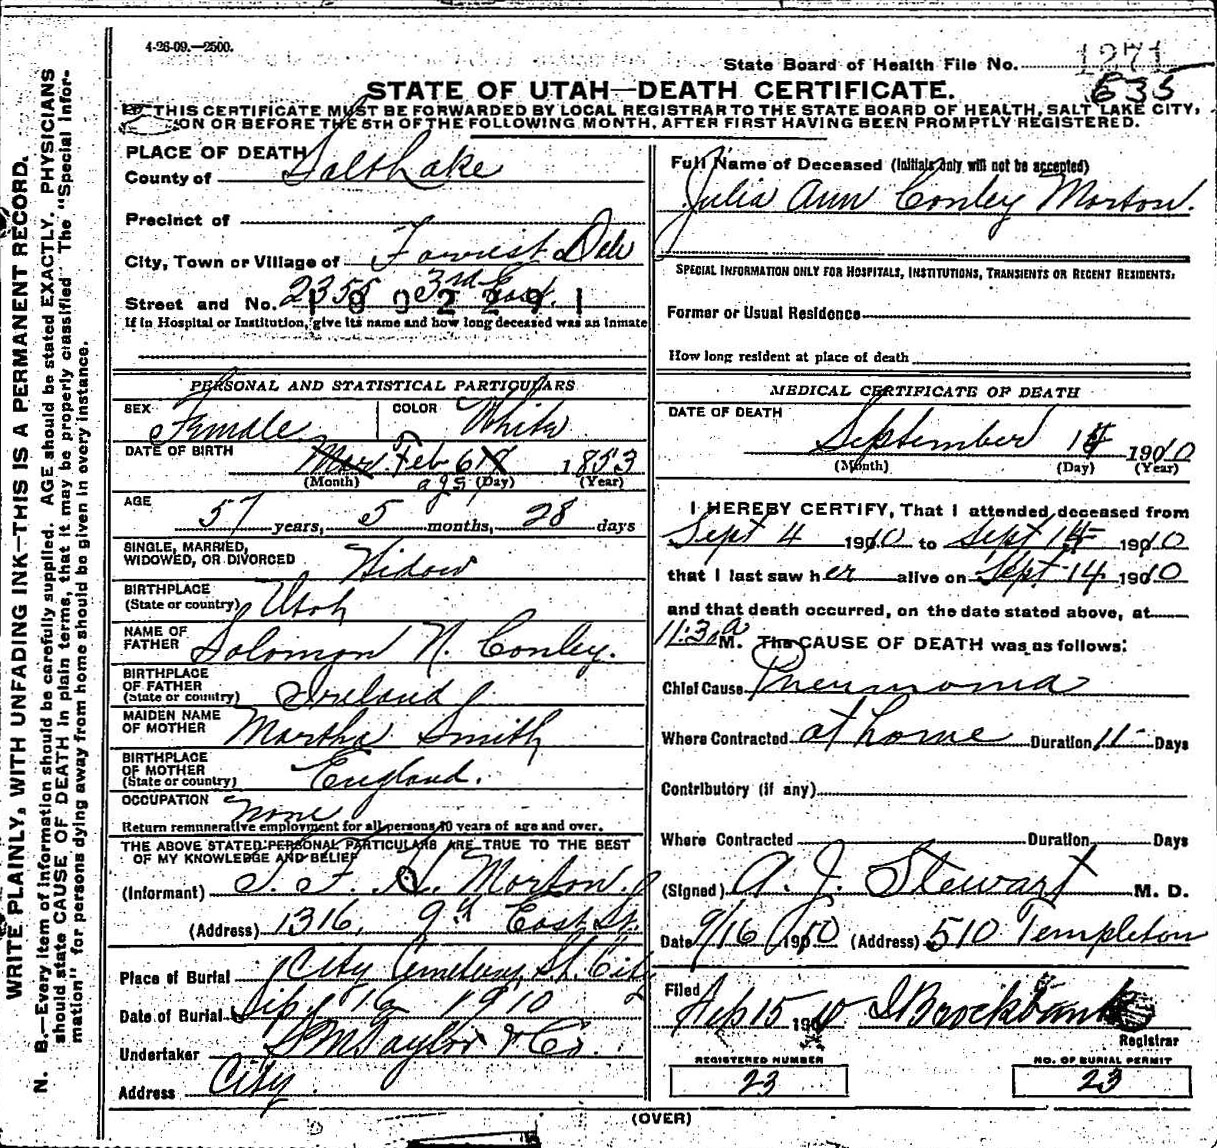 4-26-09.—2500.
State Board of Health File No. 1271
635
STATE OF UTAH—DEATH CERTIFICATE.
THIS CERTIFICATE MUST BE FORWARDED BY LOCAL REGISTRAR TO THE STATE BOARD OF HEALTH, SALT LAKE CITY,
ON OR BEFORE THE 5TH OF THE FOLLOWING MONTH, AFTER FIRST HAVING BEEN PROMPTLY REGISTERED.
WRITE PLAINLY, WITH UNFADING INK—THIS IS A PERMANENT RECORD.
N. B.—Every item of information should be carefully supplied. AGE should be stated EXACTLY. PHYSICIANS
should state CAUSE OF DEATH in plain terms, that it may be properly classified. The "Special Infor-
mation" for persons dying away from home should be given in every instance.
PLACE OF DEATH
County of Salt Lake
Precinct of
City, Town or Village of Forrest Dale
Street and No. 2355 3rd East.
1 0 0 2 2 9 1
If in Hospital or Institution, give its name and how long deceased was an inmate
PERSONAL AND STATISTICAL PARTICULARS
SEX Female COLOR White
DATE OF BIRTH Mar Feb 6 1853
(Month) (Day) (Year)
AGE 57 years, 5 months, 28 days
SINGLE, MARRIED,
WIDOWED, OR DIVORCED Widow
BIRTHPLACE
(State or country) Utah
NAME OF
FATHER Solomon N. Conley.
BIRTHPLACE
OF FATHER
(State or country) Ireland
MAIDEN NAME
OF MOTHER Martha Smith
BIRTHPLACE
OF MOTHER
(State or country) England.
OCCUPATION none
Return remunerative employment for all persons 10 years of age and over.
THE ABOVE STATED PERSONAL PARTICULARS ARE TRUE TO THE BEST
OF MY KNOWLEDGE AND BELIEF
(Informant) Morton.
(Address) 1316, 9th East St.
Place of Burial City Cemetery, St. City
Date of Burial Sep 16 1910
Undertaker S M Taylor & Co.
Address City.
Full Name of Deceased (Initials only will not be accepted)
Julia Ann Conley Morton.
SPECIAL INFORMATION ONLY FOR HOSPITALS, INSTITUTIONS, TRANSIENTS OR RECENT RESIDENTS:
Former or Usual Residence
How long resident at place of death
MEDICAL CERTIFICATE OF DEATH
DATE OF DEATH
September 14 1910
(Month) (Day) (Year)
I HEREBY CERTIFY, That I attended deceased from
Sept 4 1910 to Sept 14 1910
that I last saw her alive on Sept. 14 1910
and that death occurred, on the date stated above, at
11:30 a M. The CAUSE OF DEATH was as follows:
Chief Cause Pneumonia
Where Contracted at home Duration 11 Days
Contributory (if any)
Where Contracted Duration Days
(Signed) A. J. Stewart M. D.
Date 9/16 1910 (Address) 510 Templeton
Filed Sep 15 1910 Brockbank
Registrar
REGISTERED NUMBER
23
NO. OF BURIAL PERMIT
23
(OVER)